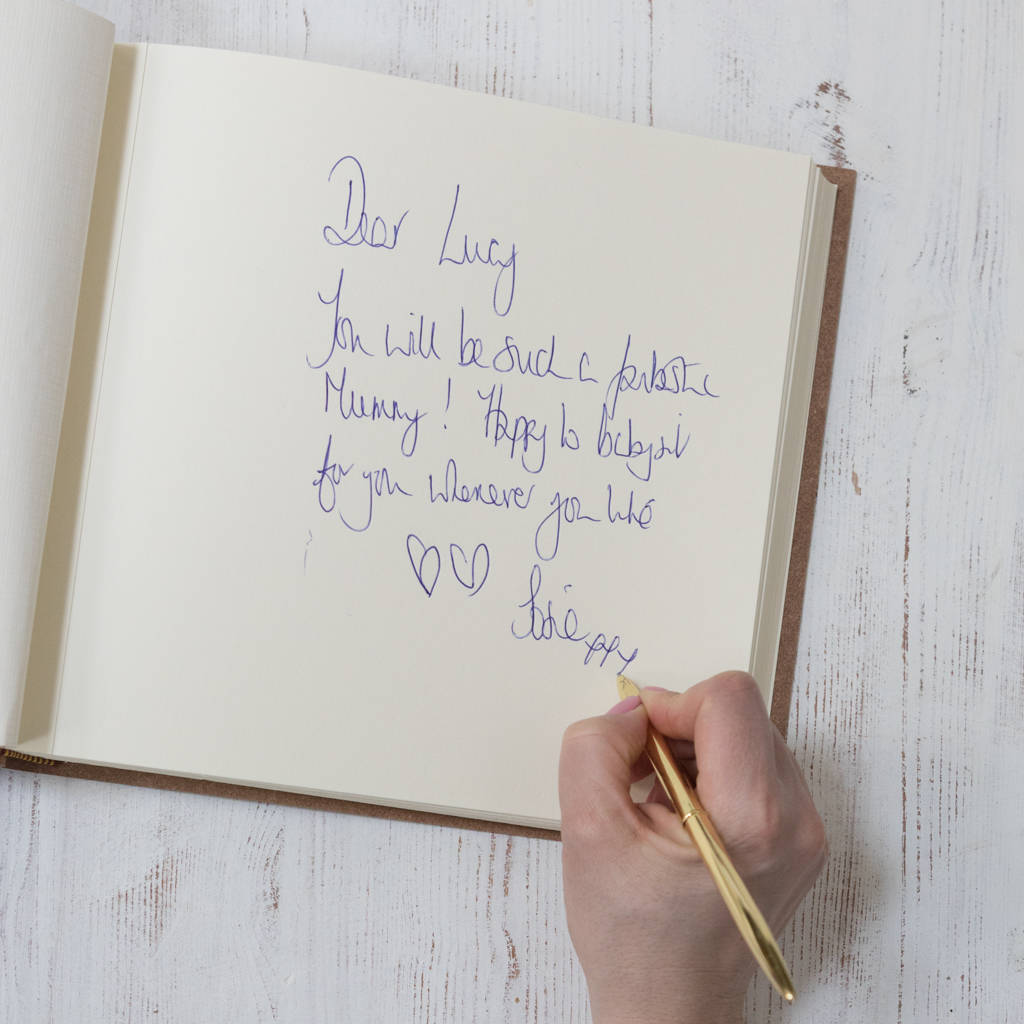 Dear Lucy
You will be such a fantastic
Mummy! Happy to babysit
for you whenever you like
Josie xxx